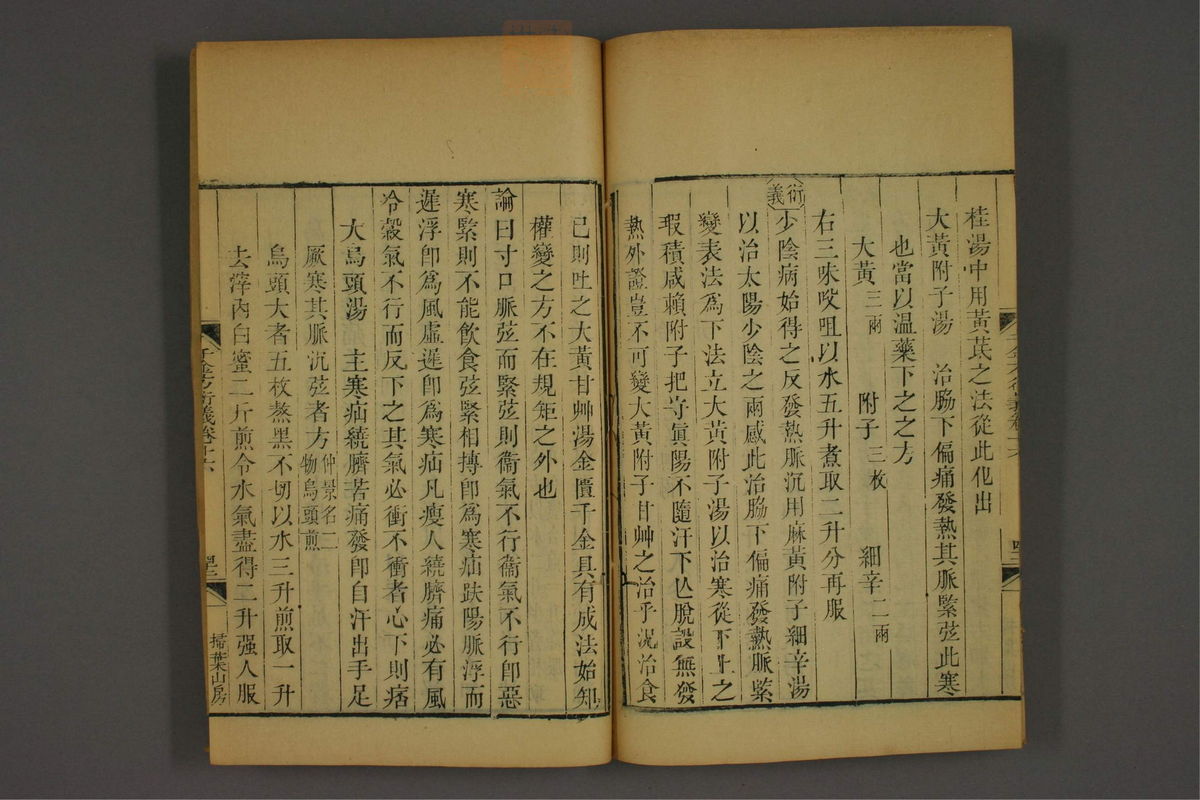 桂湯中用黃芪之法從此化出
大黃附子湯　治脇下偏痛發熱其脈緊弦此寒
也當以温藥下之之方
大黃三兩　附子三枚　細辛二兩
右三味㕮咀以水五升煮取二升分再服
衍義
少陰病始得之反發熱脈沉用麻黃附子細辛湯
以治太陽少陰之兩感此治脇下偏痛發熱脈緊
變表法爲下法立大黃附子湯以治寒從下上之
瘕積咸賴附子把守眞陽不隨汗下亾脫設無發
熱外證豈不可變大黃附子甘艸之治乎況治食
已則吐之大黃甘艸湯金匱千金具有成法始知
權變之方不在規矩之外也
論曰寸口脈弦而緊弦則衞氣不行衞氣不行卽惡
寒緊則不能飮食弦緊相摶卽爲寒疝趺陽脈浮而
遲浮卽爲風虛遲卽爲寒疝凡瘦人繞臍痛必有風
冷穀氣不行而反下之其氣必衝不衝者心下則痞
大烏頭湯　主寒疝繞臍苦痛發卽自汗出手足
厥寒其脈沉弦者方仲景名二物烏頭煎
烏頭大者五枚熬黑不切以水三升煎取一升
去滓內白蜜二斤煎令水氣盡得二升强人服
千金方衍義卷十六
掃葉山房